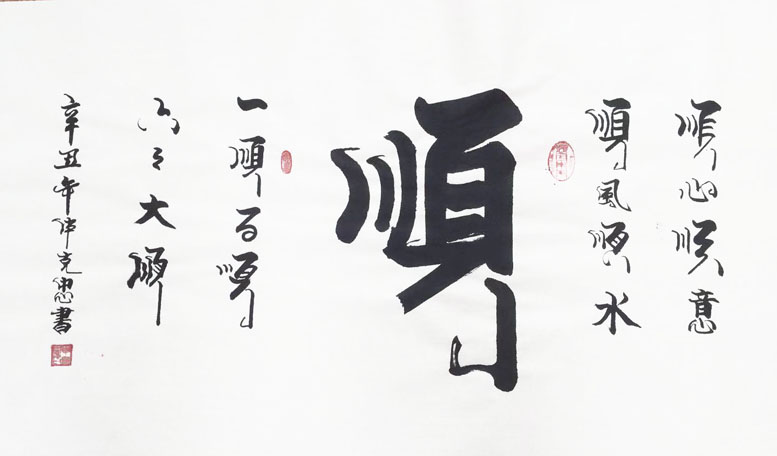 順心順意
順風順水
順
一順百順
六六大順
辛丑年仲克忠書